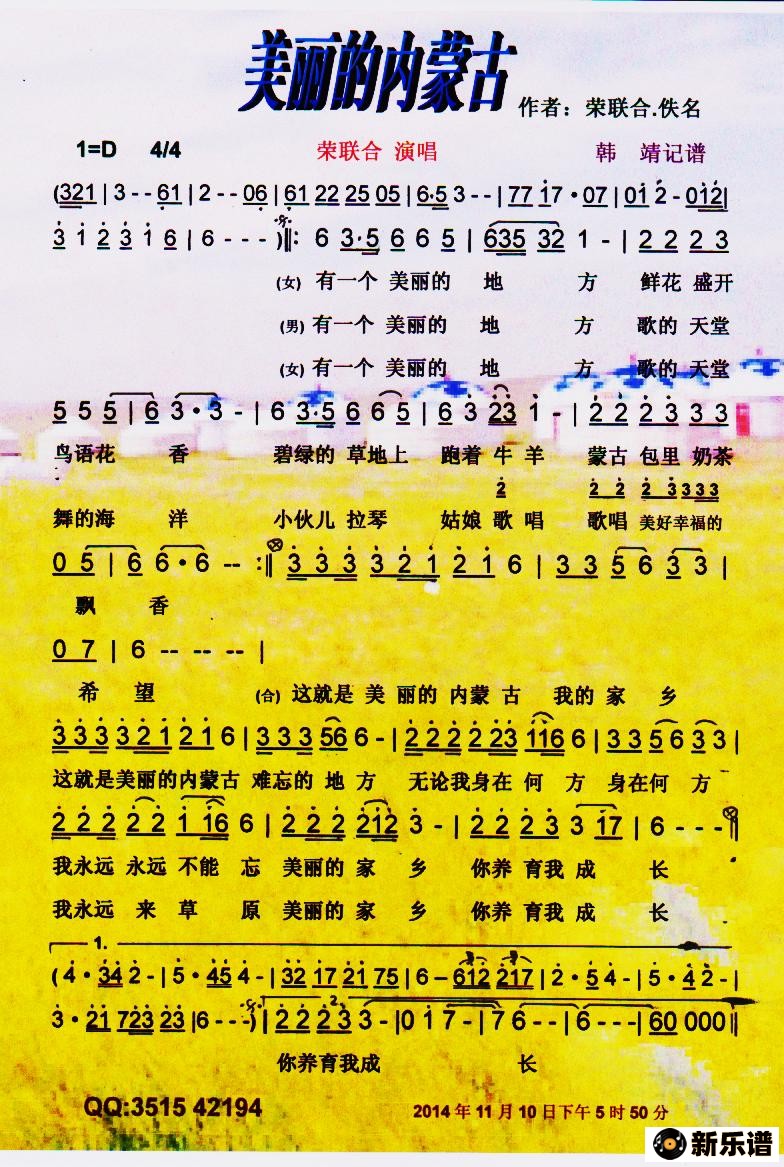 美丽的内蒙古
作者：荣联合.佚名
1=D 4/4 荣联合 演唱 韩 靖记谱
(321 | 3 - - 61 | 2 - - 06 | 61 22 25 05 | 6·5 3 - - | 77 17·07 | 01 2 - 012|
3 1 2 3 1 6 | 6 - - - )‖: 6 3·5 6 6 5 | 635 32 1 - | 2 2 2 3
(女) 有一个 美丽的 地 方 鲜花 盛开
(男) 有一个 美丽的 地 方 歌的 天堂
(女) 有一个 美丽的 地 方 歌的 天堂
5 5 5 | 6 3·3 - | 6 3·5 6 6 5 | 6 3 23 1 - | 2 2 2 3 3 3
鸟语花 香 碧绿的 草地上 跑着 牛 羊 蒙古 包里 奶茶
2 2 2 2 3 3 3 3
舞的海 洋 小伙儿 拉琴 姑娘 歌 唱 歌唱 美好幸福的
0 5 | 6 6·6 - - :‖ 3 3 3 3 2 1 2 1 6 | 3 3 3 5 6 3 3 |
飘 香
0 7 | 6 -- -- -- |
希 望 (合) 这就是 美 丽的 内蒙 古 我的 家 乡
3 3 3 3 2 1 2 1 6 | 3 3 3 56 6 - | 2 2 2 2 23 116 6 | 3 3 5 6 3 3 |
这就是美丽的内蒙古 难忘的 地 方 无论我身在 何 方 身在何 方
2 2 2 2 2 1 16 6 | 2 2 2 212 3 - | 2 2 2 3 3 17 | 6 - - - ‖
我永远 永远 不能 忘 美丽的 家 乡 你养 育我 成 长
我永远 来 草 原 美丽的 家 乡 你养 育我 成 长
1.
(4·34 2 - | 5·45 4 - | 32 17 21 75 | 6 - 612 217 | 2·5 4 - | 5·4 2 - |
3·21 723 23 |6 - - - )| 2 2 2 3 3 - |0 1 7 - | 7 6 - - | 6 - - - | 60 000 ‖
2.
你养育我成 长
QQ:3515 42194
2014 年 11 月 10 日下午 5 时 50 分
新乐谱